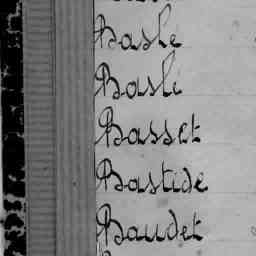 Basle
Basli
Basset
Bastide
Baudet